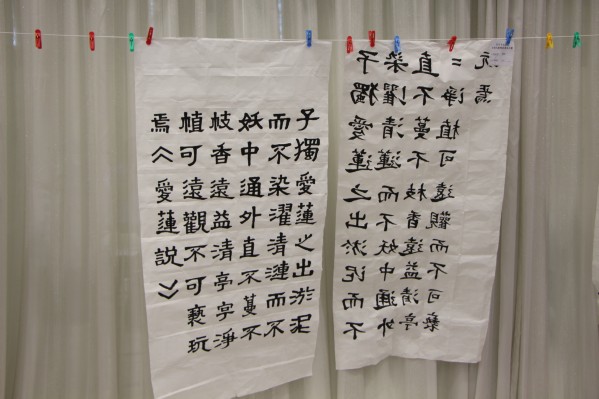 子獨愛蓮之出淤泥
而不染濯清漣而不
妖中通外直不蔓不
枝香遠益清亭亭淨
植可遠觀不可褻玩
焉《愛蓮說》
予獨愛蓮之出淤泥而不
染濯清漣而不妖中通外
直不蔓不枝香遠益清亭
=淨植可遠觀而不可褻
玩焉